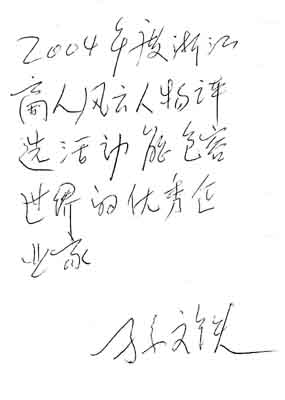 2004年度浙江
商人风云人物评
选活动能包容
世界的优秀企
业家
孙文铁